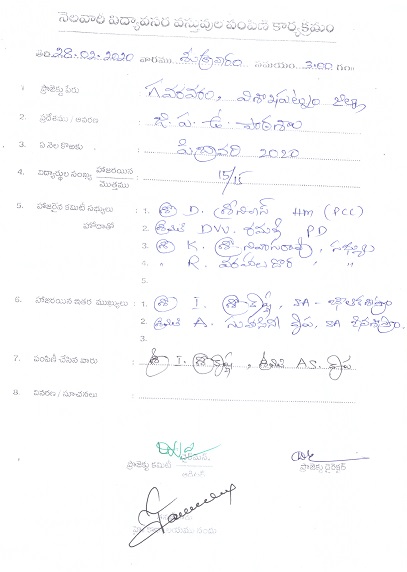 నెలవారీ విద్యావసర వస్తువుల పంపిణీ కార్యక్రమం
తేది 28.02.2020 వారము శుక్రవారం సమయం 3:00 గం॥
1 ప్రాజెక్టు పేరు గవరవరం, విశాఖపట్నం జిల్లా
2. ప్రదేశము / ఆవరణ జి. ప. ఉ. పాఠశాల
3. ఏ నెల కొఱకు ఫిబ్రవరి 2020
4. విద్యార్థుల సంఖ్య హాజరయిన / మొత్తము 15/15
5. హాజరైన కమిటీ సభ్యులు : 1. శ్రీ D. శ్రీనివాస్ HM (PCC)
హోదాతో 2. శ్రీమతి DW. PD
3. శ్రీ K. శ్రీనివాసరావు, సభ్యులు
4. " R. వరహాలదొర " "
5.
6. హాజరయిన ఇతర ముఖ్యులు : 1. శ్రీ I. SA -
2. శ్రీమతి A. సువాసిని SA
3.
7. పంపిణీ చేసిన వారు : శ్రీ I. , శ్రీమతి A.S.
8. వివరణ / సూచనలు :
ప్రాజెక్టు కమిటీ ఛైర్మన్.
ప్రాజెక్టు డైరెక్టర్